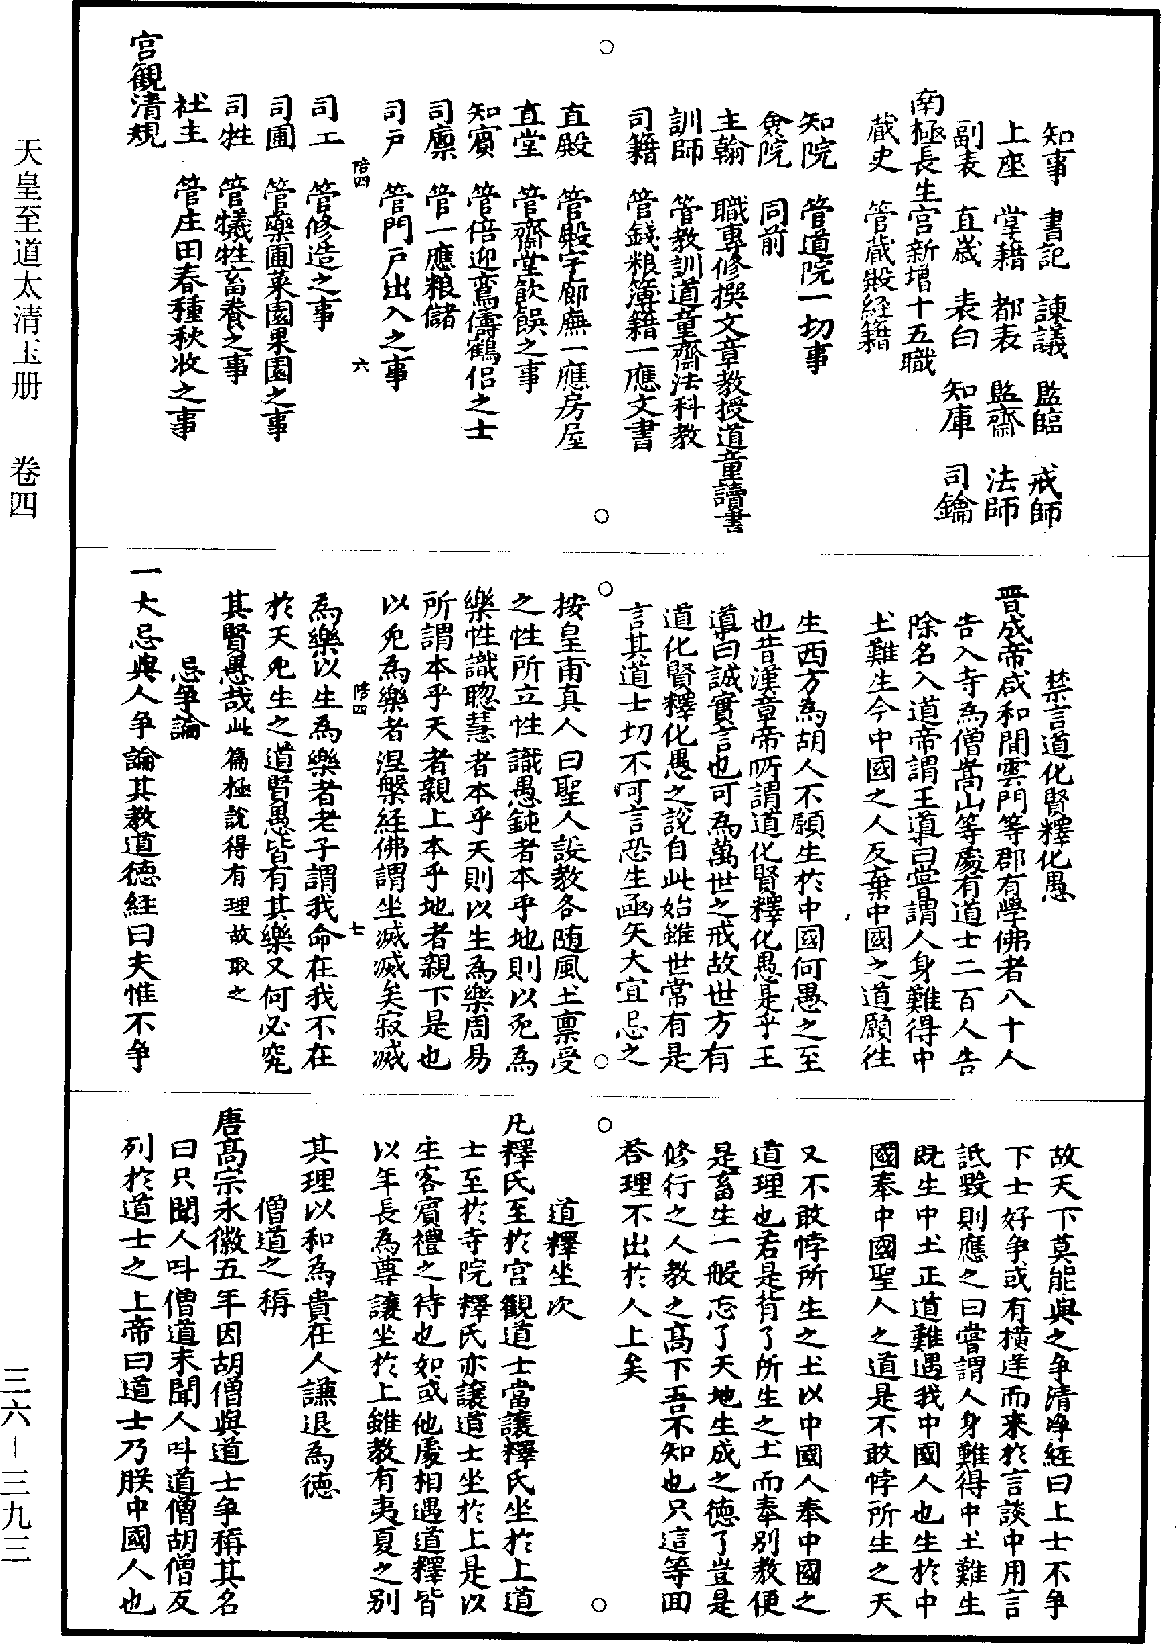 知事　書記　諫議　監臨　戒師
上座　掌籍　都表　監齋　法師
副表　直歲　表白　知庫　司鑰
南極長生宮新增十五職
藏史　管藏殿經籍
知院　管道院一切事
僉院　同前
主翰　職專修撰文章教授道童讀書
訓師　管教訓道童齋法科教
司籍　管錢粮簿籍一應文書
直殿　管殿宇廊廡一應房屋
直堂　管齋堂飲饌之事
知賓　管倍迎鸞儔鶴侣之士
司廪　管一應粮儲
司戶　管門戶出入之事
陪四　六
司工　管修造之事
司圃　管藥圃菜園果園之事
司牲　管犧牲畜養之事
社主　管庄田春種秋收之事
宫觀清規
禁言道化賢釋化愚
晋成帝咸和間雲門等郡有學佛者八十人
告入寺為僧嵩山等處有道士二百人告
除名入道帝謂王導曰嘗謂人身難得中
土難生今中國之人反棄中國之道願往
生西方為胡人不願生於中國何愚之至
也昔漢章帝所謂道化賢釋化愚是乎王
導曰誠實言也可為萬世之戒故世方有
道化賢釋化愚之說自此始雖世常有是
言其道士切不可言恐生函矢大宜忌之
按皇甫真人曰聖人設教各随風土禀受
之性所立性識愚鈍者本乎地則以死為
樂性識聦慧者本乎天則以生為樂周易
所謂本乎天者親上本乎地者親下是也
以死為樂者涅槃經佛謂坐滅滅矣寂滅
陪四　七
為樂以生為樂者老子謂我命在我不在
於天死生之道賢愚皆有其樂又何必究
其賢愚哉此篇極說得有理故取之
忌爭論
一大忌與人爭論其教道德經曰夫惟不争
故天下莫能與之争清净經曰上士不争
下士好争或有横逆而來於言談中用言
詆毀則應之曰嘗謂人身難得中土難生
既生中土正道難遇我中國人也生於中
國奉中國聖人之道是不敢悖所生之天
又不敢悖所生之土以中國人奉中國之
道理也若是背了所生之土而奉别教便
是畜生一般忘了天地生成之德了豈是
修行之人教之高下吾不知也只這等回
荅理不出於人上矣
道釋坐次
凡釋氏至於宫觀道士當讓釋氏坐於上道
士至於寺院釋氏亦讓道士坐於上是以
生客賓禮之待也如或他處相遇道釋皆
以年長為尊讓坐於上雖教有夷夏之别
其理以和為貴在人謙退為德
僧道之稱
唐高宗永徽五年因胡僧與道士争稱其名
曰只聞人呌僧道未聞人呌道僧胡僧反
列於道士之上帝曰道士乃朕中國人也
天皇至道太清玉册　卷四
三六－三九三